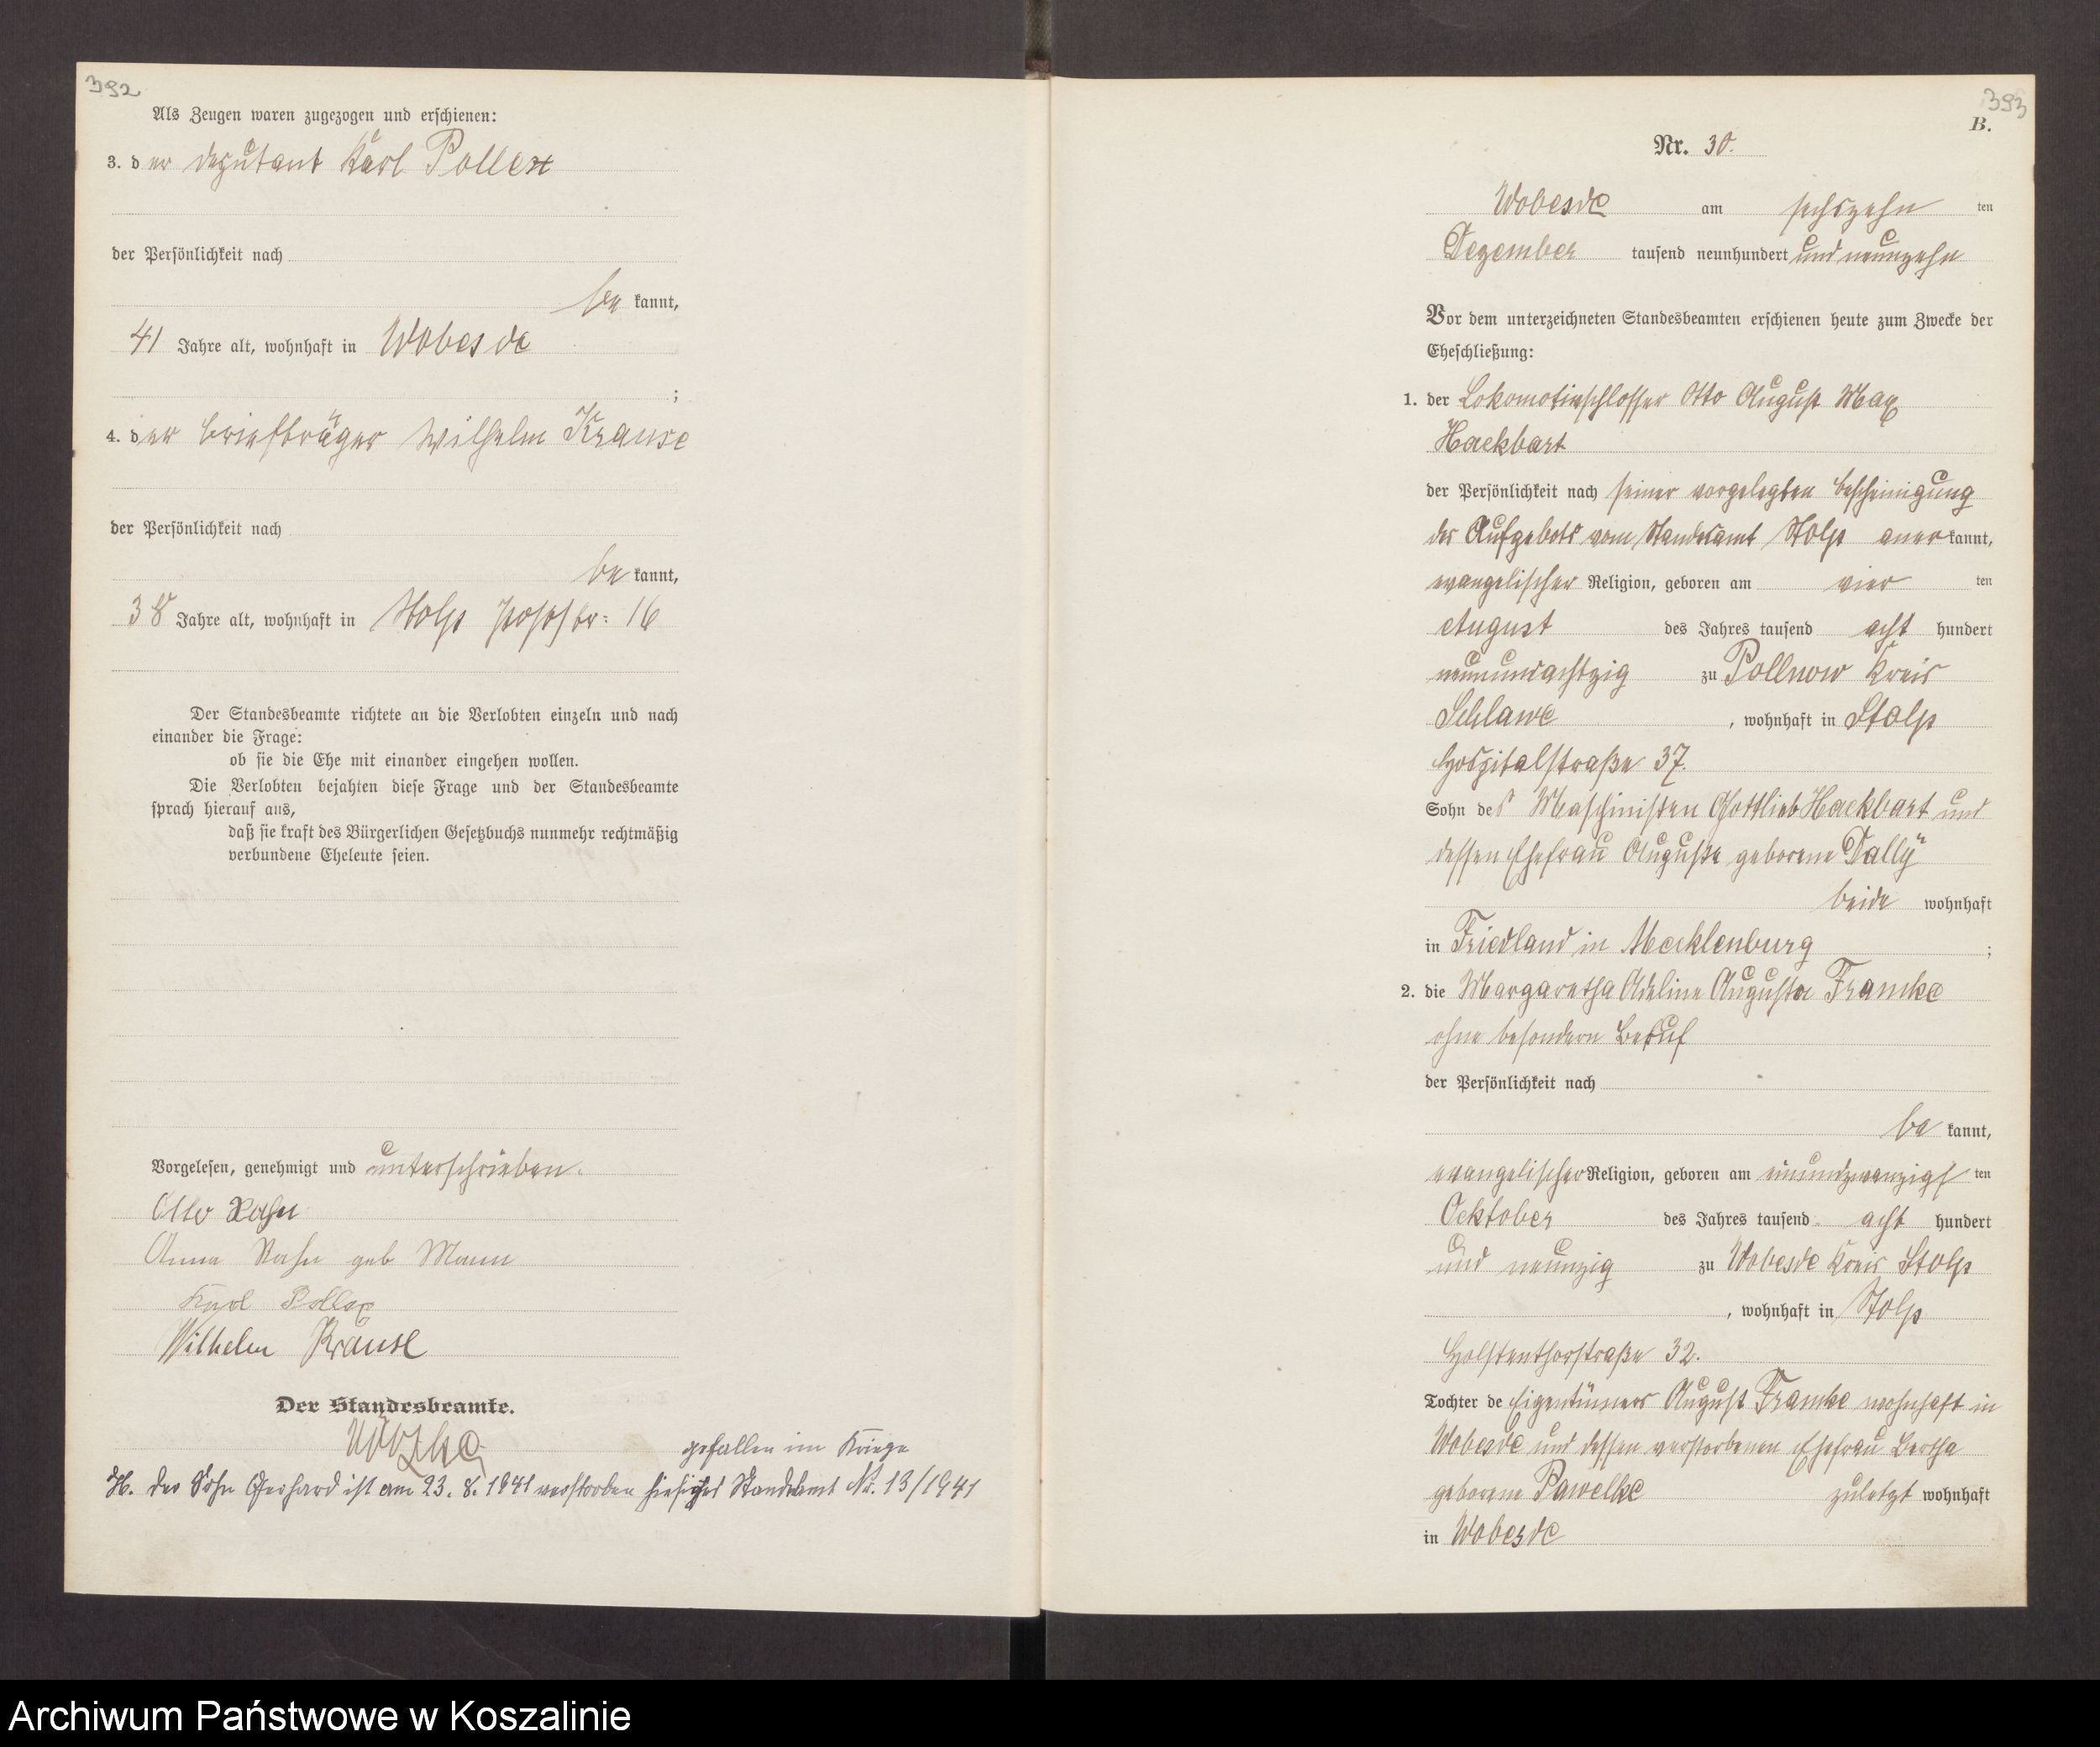 392
Als Zeugen waren zugezogen und erschienen:
3. der Deputant Karl Pollex
der Persönlichkeit nach
be kannt,
41 Jahre alt, wohnhaft in Wobesde
;
4. der Briefträger Wilhelm Krause
der Persönlichkeit nach
be kannt,
38 Jahre alt, wohnhaft in Stolp Poststr: 16
Der Standesbeamte richtete an die Verlobten einzeln und nach
einander die Frage:
ob sie die Ehe mit einander eingehen wollen.
Die Verlobten bejahten diese Frage und der Standesbeamte
sprach hierauf aus,
daß sie kraft des Bürgerlichen Gesetzbuchs nunmehr rechtmäßig
verbundene Eheleute seien.
Vorgelesen, genehmigt und unterschrieben.
Otto Rahn
Anna Rahn geb Mann
Karl Pollex
Wilhelm Krause
Der Standesbeamte.
gefallen im Kriege
H. Der Sohn Gerhard ist am 23. 8. 1941 verstorben hiesiges Standesamt Nr. 13/1941
393
B.
Nr. 30.
Wobesde am sechszehn ten
Dezember tausend neunhundert und neunzehn
Vor dem unterzeichneten Standesbeamten erschienen heute zum Zwecke der
Eheschließung:
1. der Lokomotivschlosser Otto August Max
Hackbart
der Persönlichkeit nach seiner vorgelegten Bescheinigung
des Aufgebots vom Standesamt Stolp aner kannt,
evangelischer Religion, geboren am vier ten
August des Jahres tausend acht hundert
neunundachtzig zu Pollnow Kreis
Schlawe , wohnhaft in Stolp
Hospitalstraße 37.
Sohn des Maschinisten Gottlieb Hackbart und
dessen Ehefrau Auguste geborene Dally
beide wohnhaft
in Friedland in Mecklenburg ;
2. die Margaretha Adeline Augusta Framke
ohne besondern Beruf
der Persönlichkeit nach
be kannt,
evangelischer Religion, geboren am einundzwanzigs ten
Ocktober des Jahres tausend acht hundert
und neunzig zu Wobesde Kreis Stolp
, wohnhaft in Stolp
Holstenthorstraße 32.
Tochter de Eigentümers August Framke wohnhaft in
Wobesde und dessen verstorbenen Ehefrau Bertha
geborene Pawelke zuletzt wohnhaft
in Wobesde
Archiwum Państwowe w Koszalinie